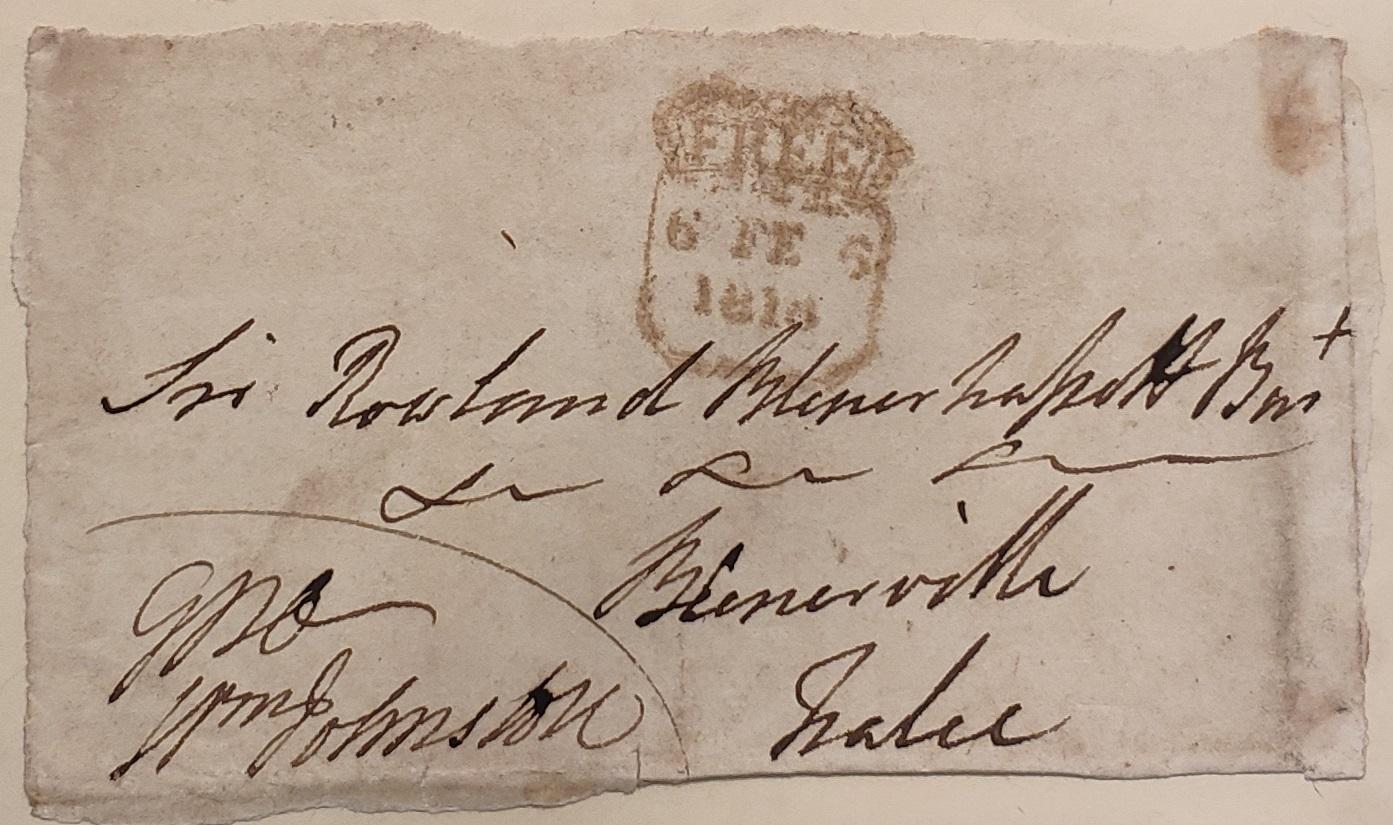 FREE
6 FE 6
181
Sir Rowland Blenerhassett Bart
&c &c &c
Blenerville
Tralee
GPO
Wm Johnston